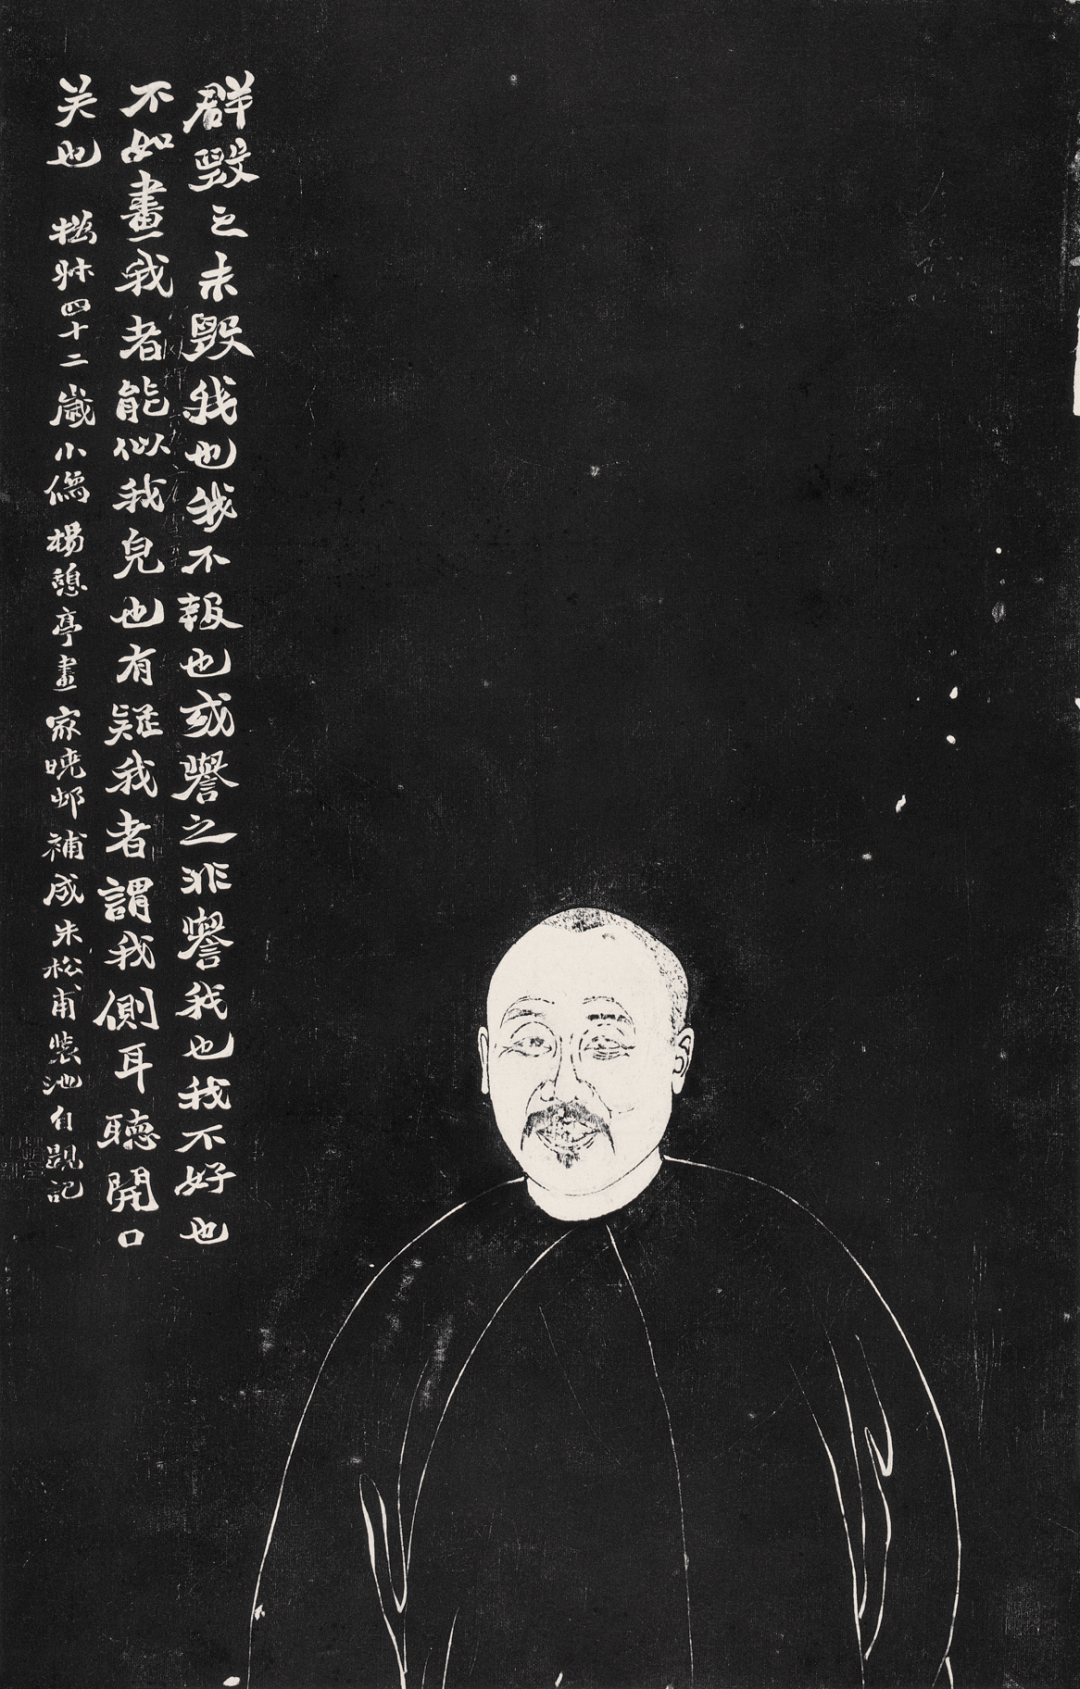 群毀之未毀我也我不報也或譽之非譽我也我不好也
不如畫我者能似我皃也有疑我者謂我側耳聽開口
笑也 撝叔四十二歲小像楊憩亭畫家曉邨補成朱松甫裝池自題記